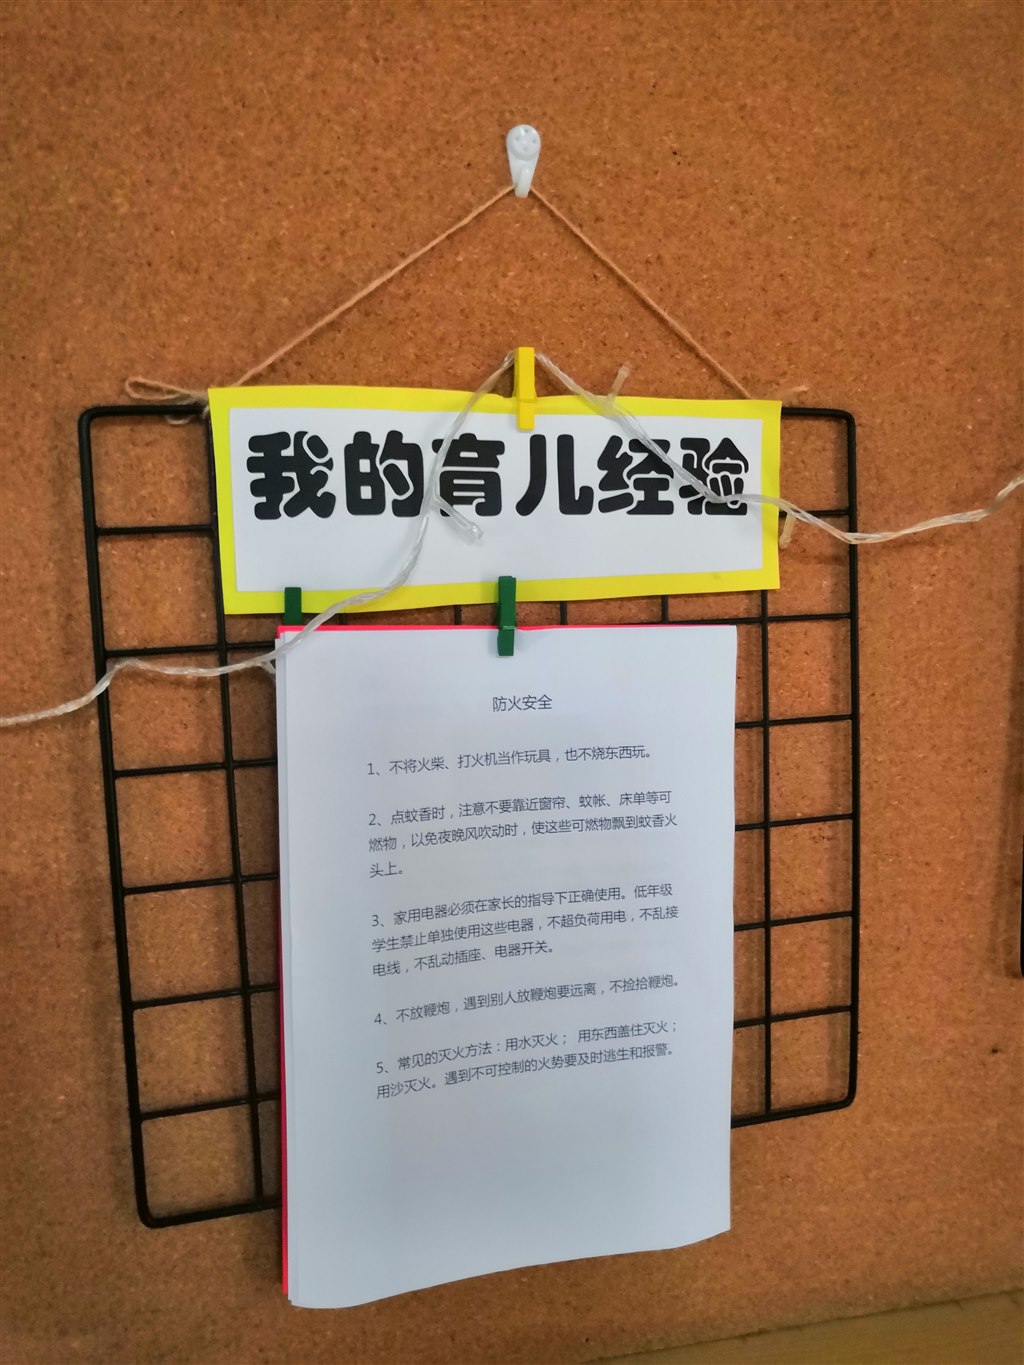 我的育儿经验
防火安全
1、不将火柴、打火机当作玩具，也不烧东西玩。
2、点蚊香时，注意不要靠近窗帘、蚊帐、床单等可
燃物，以免夜晚风吹动时，使这些可燃物飘到蚊香火
头上。
3、家用电器必须在家长的指导下正确使用。低年级
学生禁止单独使用这些电器，不超负荷用电，不乱接
电线，不乱动插座、电器开关。
4、不放鞭炮，遇到别人放鞭炮要远离，不捡拾鞭炮。
5、常见的灭火方法：用水灭火； 用东西盖住灭火；
用沙灭火。遇到不可控制的火势要及时逃生和报警。